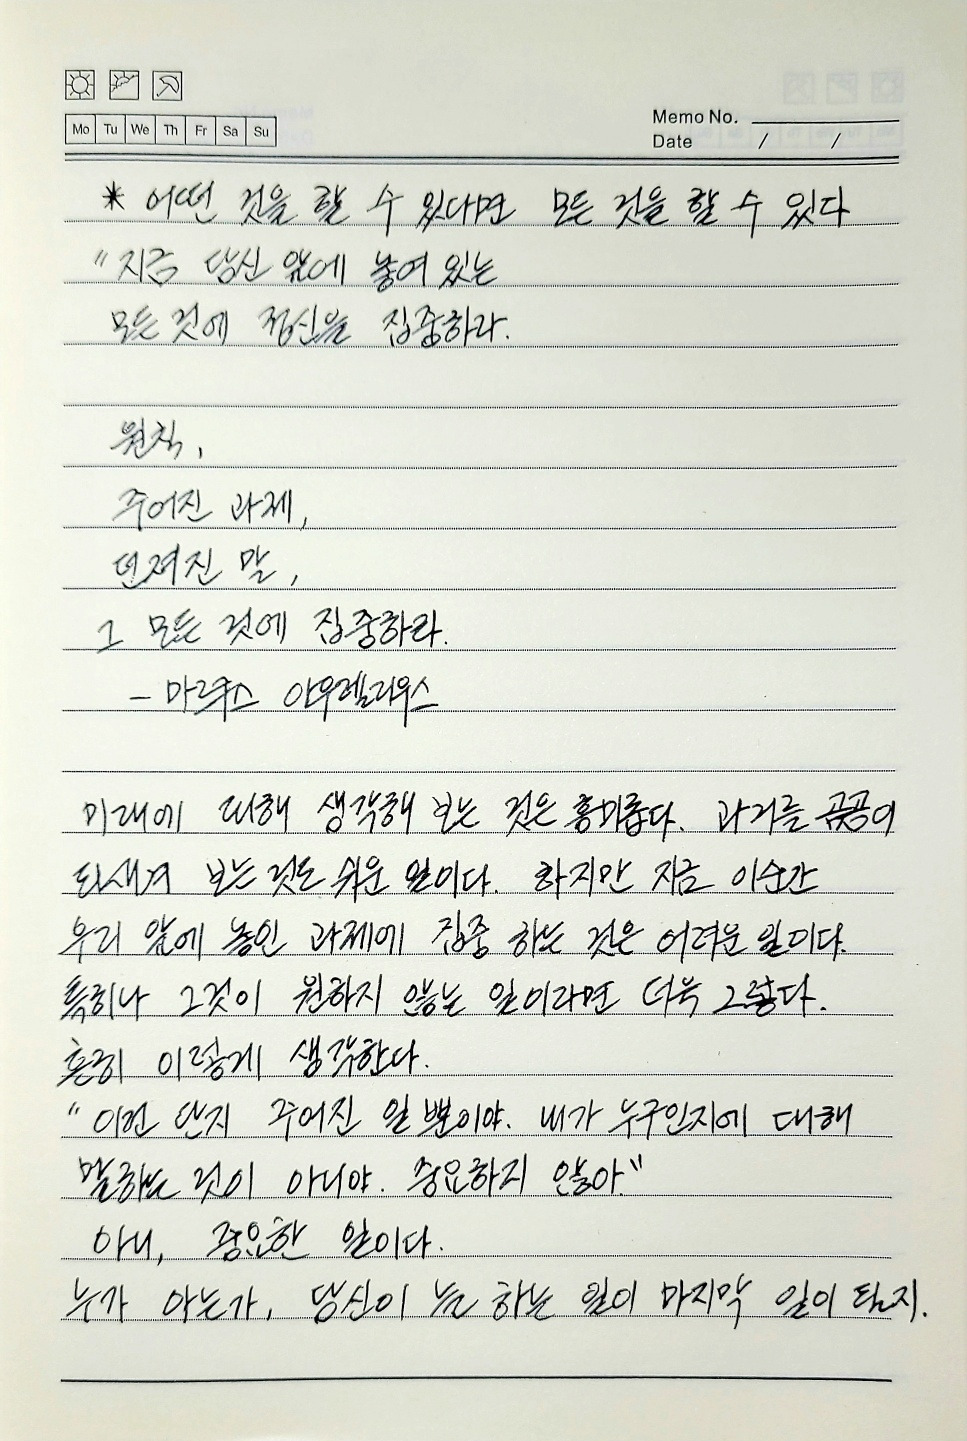 Mo Tu We Th Fr Sa Su
Memo No.
Date / /
* 어떤 것을 할 수 있다면 모든 것을 할 수 있다
"지금 당신 앞에 놓여 있는
모든 것에 정신을 집중하라.
원칙,
주어진 과제,
던져진 말,
그 모든 것에 집중하라.
- 마르쿠스 아우렐리우스
미래에 대해 생각해 보는 것은 흥미롭다. 과거를 곰곰이
되새겨 보는 것도 쉬운 일이다. 하지만 지금 이순간
우리 앞에 놓인 과제에 집중 하는 것은 어려운 일이다.
특히나 그것이 원하지 않는 일이라면 더욱 그렇다.
흔히 이렇게 생각한다.
"이건 단지 주어진 일 뿐이야. 내가 누구인지에 대해
말하는 것이 아니야. 중요하지 않아."
아니, 중요한 일이다.
누가 아는가, 당신이 하는 일이 마지막 일이 될지.